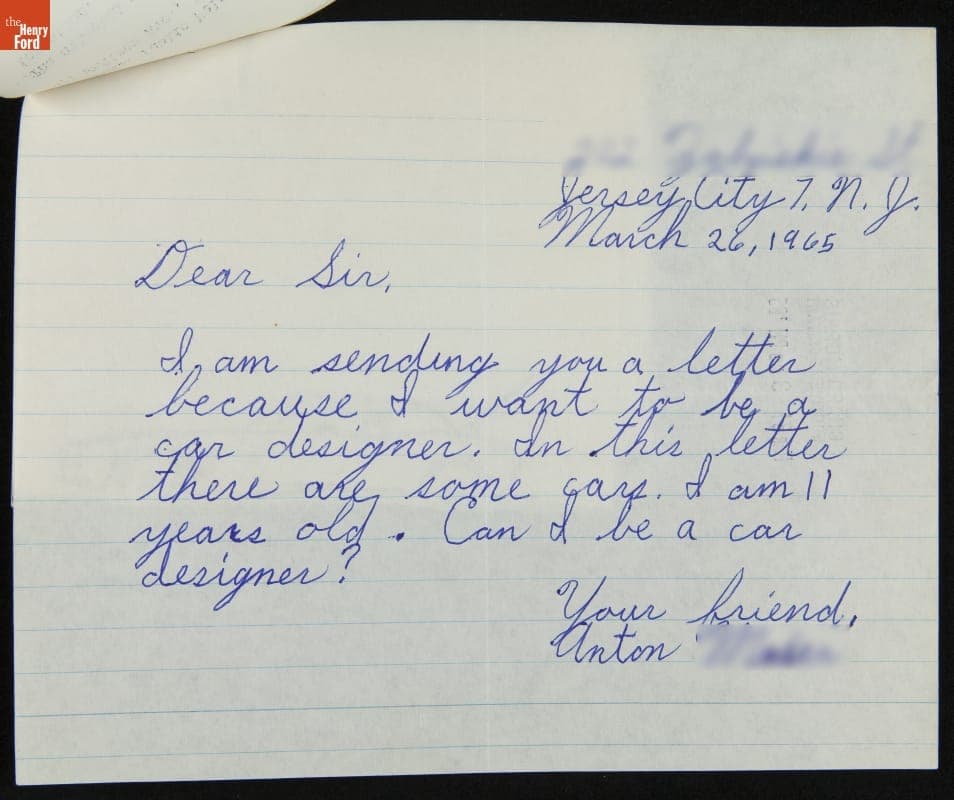 the
Henry
Ford
Jersey City 7, N. J.
March 26, 1965
Dear Sir,
I am sending you a letter
because I want to be a
car designer. In this letter
there are some cars. I am 11
years old. Can I be a car
designer?
Your friend,
Anton